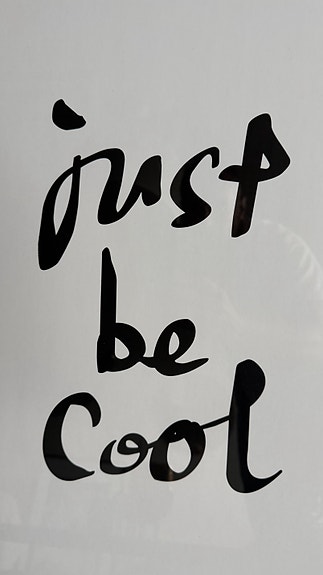 just
be
cool